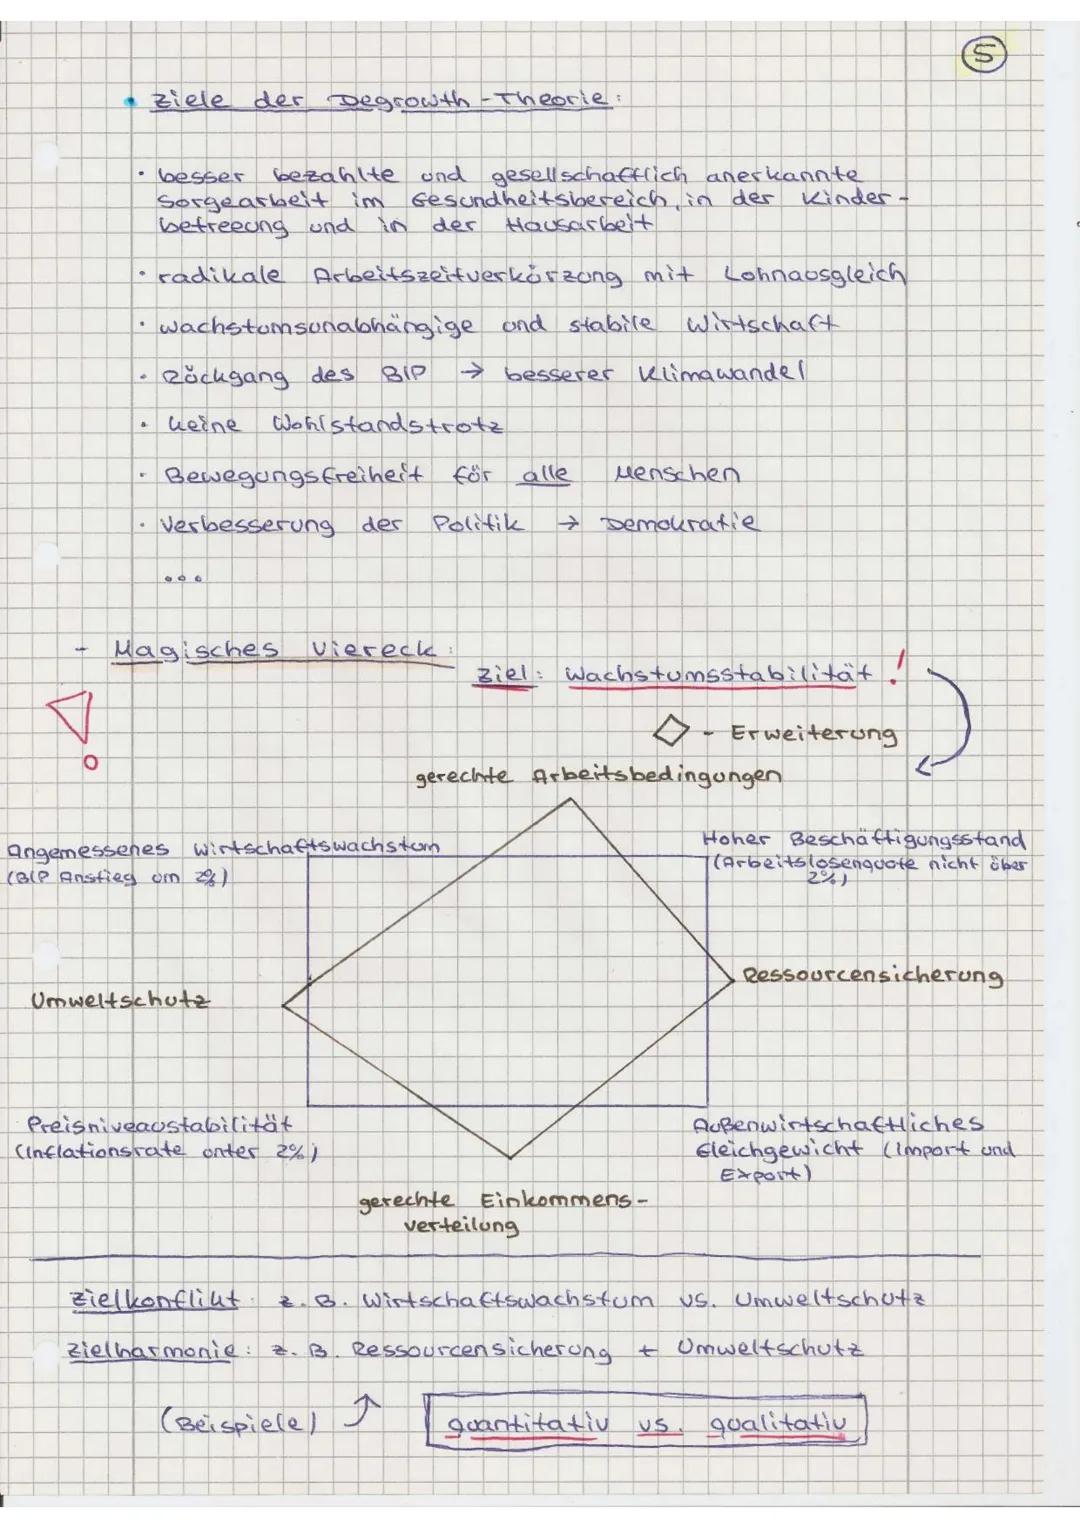 5
• Ziele der Degrowth-Theorie:
· besser bezahlte und gesellschaftlich anerkannte
Sorgearbeit im Gesundheitsbereich, in der Kinder-
betreuung und in der Hausarbeit
· radikale Arbeitszeitverkürzung mit Lohnausgleich
· wachstumsunabhängige und stabile Wirtschaft
· Rückgang des BIP → besserer Klimawandel
· keine Wohlstandstrotz
· Bewegungsfreiheit für alle Menschen
· Verbesserung der Politik → Demokratie
...
- Magisches Viereck:
Ziel: Wachstumsstabilität!
◇ - Erweiterung
gerechte Arbeitsbedingungen
Angemessenes Wirtschaftswachstum
(BIP Anstieg um 2%)
Hoher Beschäftigungsstand
(Arbeitslosenquote nicht über
2%)
Umweltschutz
Ressourcensicherung
Preisniveaustabilität
(Inflationsrate unter 2%)
Außenwirtschaftliches
Gleichgewicht (Import und
Export)
gerechte Einkommens-
verteilung
Zielkonflikt: z.B. Wirtschaftswachstum vs. Umweltschutz
Zielharmonie: z.B. Ressourcensicherung + Umweltschutz
(Beispiele) ↑
quantitativ vs. qualitativ